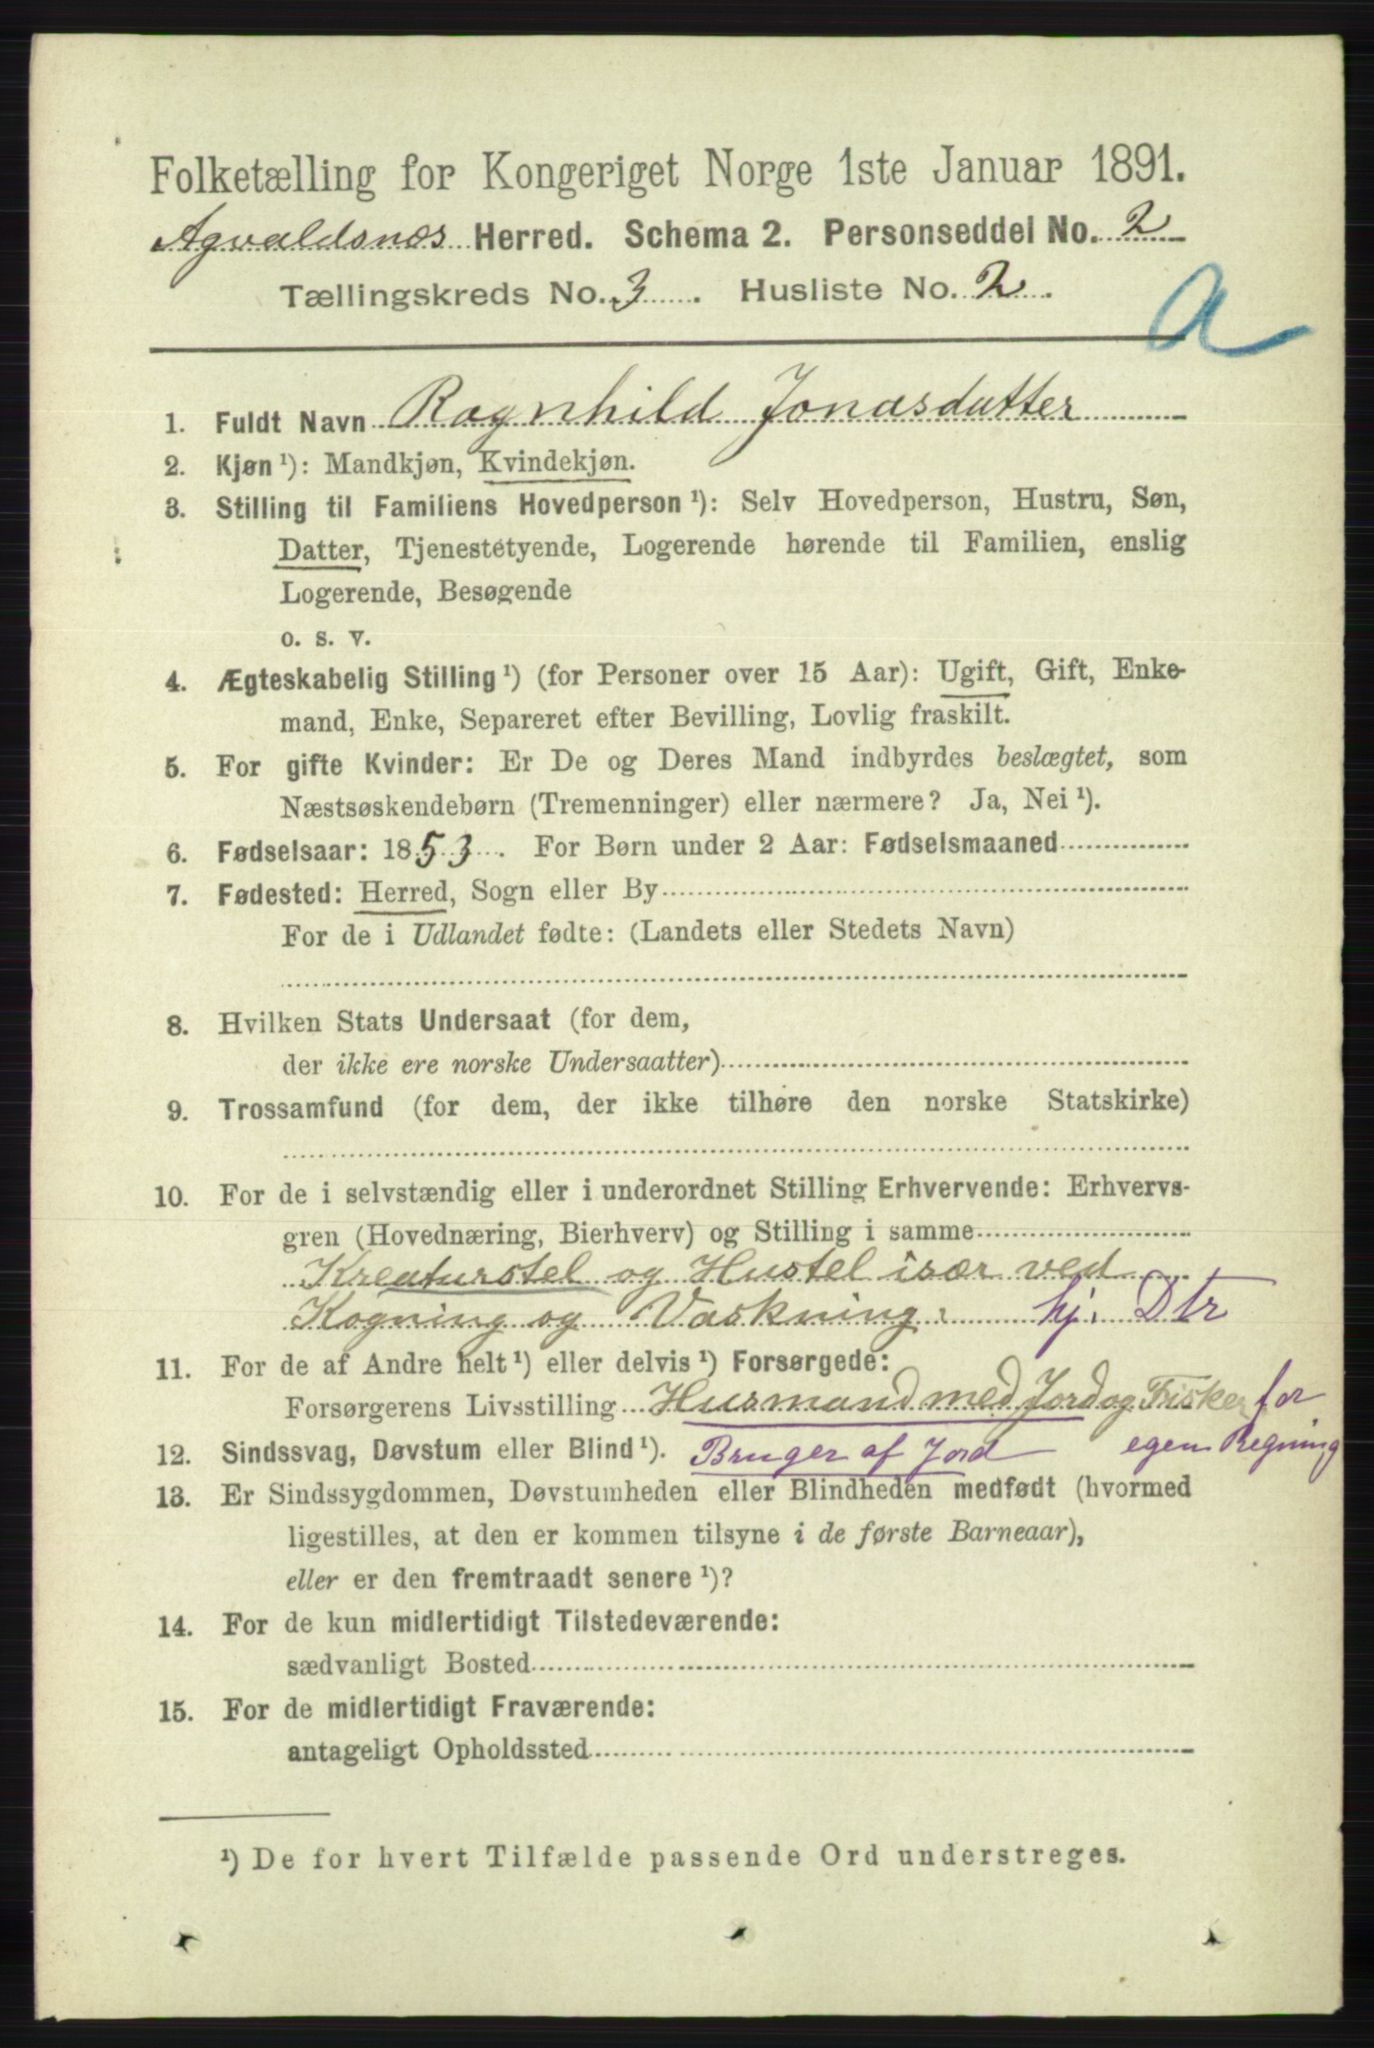 Folketælling for Kongeriget Norge 1ste Januar 1891.
Agvaldsnes Herred. Schema 2. Personseddel No. 2
Tællingskreds No. 3. Husliste No. 2.
a
1. Fuldt Navn Ragnhild Jonasdatter
2. Kjøn ¹): Mandkjøn, Kvindekjøn.
3. Stilling til Familiens Hovedperson ¹): Selv Hovedperson, Hustru, Søn,
Datter, Tjenestetyende, Logerende hørende til Familien, enslig
Logerende, Besøgende
o. s. v.
4. Ægteskabelig Stilling ¹) (for Personer over 15 Aar): Ugift, Gift, Enke-
mand, Enke, Separeret efter Bevilling, Lovlig fraskilt.
5. For gifte Kvinder: Er De og Deres Mand indbyrdes beslægtet, som
Næstsøskendebørn (Tremenninger) eller nærmere? Ja, Nei ¹).
6. Fødselsaar: 1853. For Børn under 2 Aar: Fødselsmaaned
7. Fødested: Herred, Sogn eller By
For de i Udlandet fødte: (Landets eller Stedets Navn)
8. Hvilken Stats Undersaat (for dem,
der ikke ere norske Undersaatter)
9. Trossamfund (for dem, der ikke tilhøre den norske Statskirke)
10. For de i selvstændig eller i underordnet Stilling Erhvervende: Erhvervs-
gren (Hovednæring, Bierhverv) og Stilling i samme
Kreaturstel og Hustel især ved
Kogning og Vaskning. hj. Dtr
11. For de af Andre helt ¹) eller delvis ¹) Forsørgede:
Forsørgerens Livsstilling Husmand med Jord og Fisker for
12. Sindssvag, Døvstum eller Blind ¹). Bruger af Jord egen Regning
13. Er Sindssygdommen, Døvstumheden eller Blindheden medfødt (hvormed
ligestilles, at den er kommen tilsyne i de første Barneaar),
eller er den fremtraadt senere ¹)?
14. For de kun midlertidigt Tilstedeværende:
sædvanligt Bosted
15. For de midlertidigt Fraværende:
antageligt Opholdssted
¹) De for hvert Tilfælde passende Ord understreges.